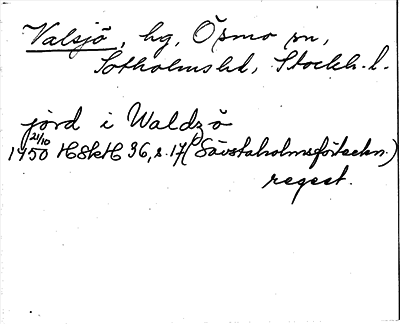 Valsjö, hg, Ösmo sn,
Sotholms hd, Stockh. l.
jord i Waldzö
21/10
1450 HSkH 36, s. 17 (Sävstaholmsförteckn.)
regest.